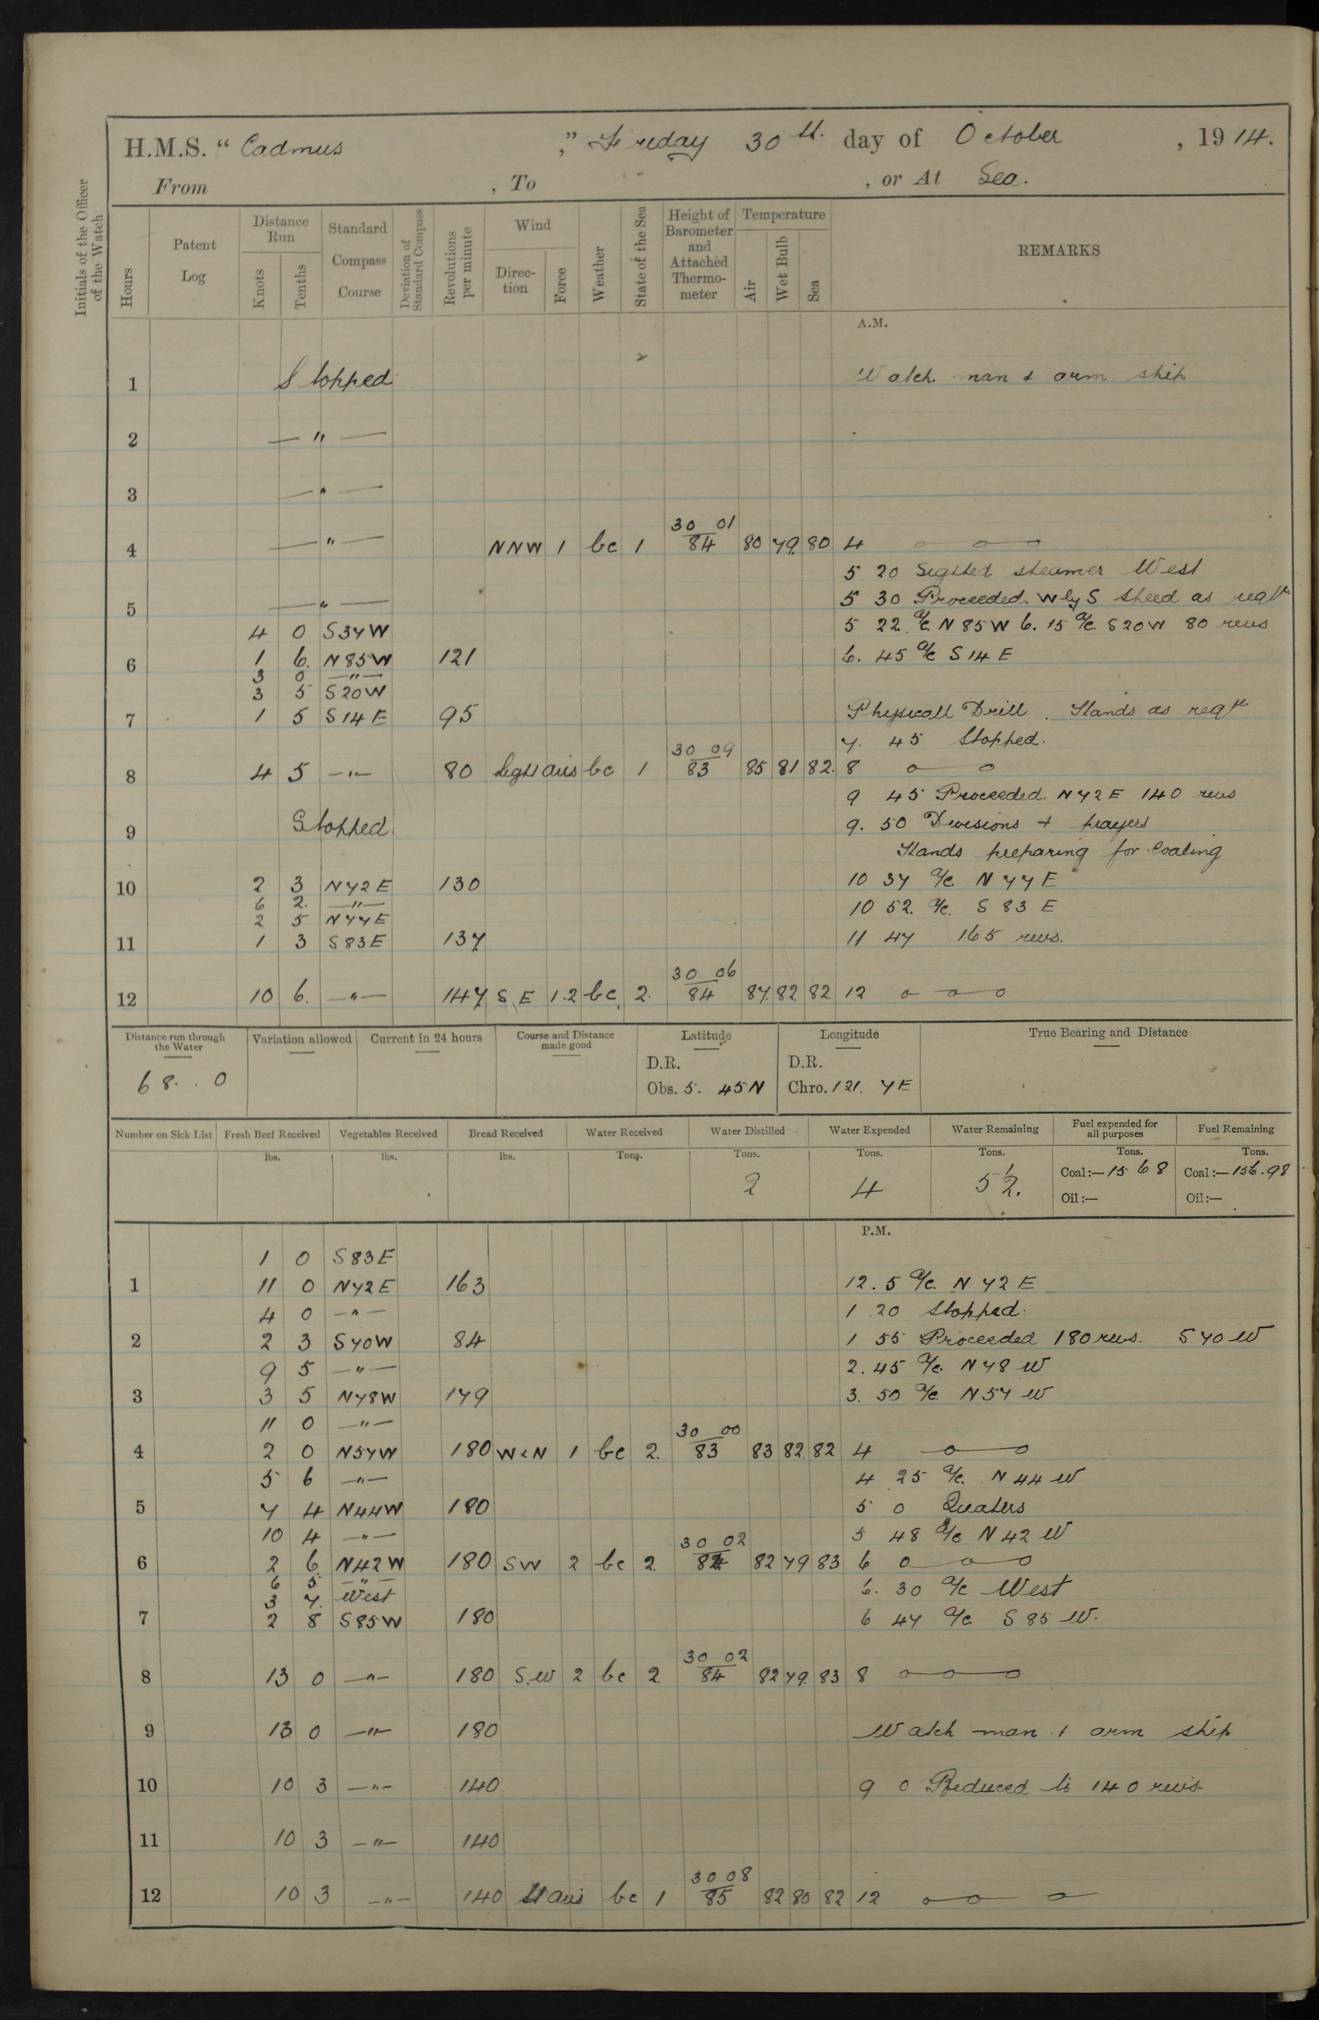 H.M.S. “ Cadmus ,” Friday 30th. day of October , 1914.
From , To , or At Sea.
Initials of the Officer of the Watch
Hours
Patent Log
Distance Run
Knots
Tenths
Standard Compass Course
Deviation of Standard Compass
Revolutions per minute
Wind
Direc- tion
Force
Weather
State of the Sea
Height of Barometer and Attached Thermo- meter
Temperature
Air
Wet Bulb
Sea
REMARKS
A.M.
1 Stopped Watch man & arm ship
2 — " —
3 — " —
30 01
4 — " — NNW 1 bc 1 84 80 79 80 4 o o o
5 20 Sighted steamer West
5 — " — 5 30 Proceeded. W by S speed as reqd
4 0 S37W 5 22 a/c N85W 6. 15 a/c S20W 80 revs
6 1 6. N85W 121 6. 45 a/c S14E
3 0 — " —
3 5 S20W
7 1 5 S14E 95 Physicall Drill. Hands as reqd
30 09 7. 45 Stopped.
8 4 5 — " — 80 Light airs bc 1 83 85 81 82. 8 o o
9 45 Proceeded. N72E 140 revs
9 Stopped. 9. 50 Divisions + prayers
Hands preparing for Coaling
10 2 3 N72E 130 10 37 a/c N77E
6 2. — " — 10 52. a/c. S 83 E
2 5 N77E
11 1 3 S83E 137 11 47 165 revs.
30 06
12 10 6. — " — 147 S E 1.2 bc 2. 84 87. 82 82 12 o o o
Distance run through the Water
Variation allowed
Current in 24 hours
Course and Distance made good
Latitude
Longitude
True Bearing and Distance
D.R. D.R.
68. . 0 Obs. 5. 45N Chro. 121. 7E
Number on Sick List
Fresh Beef Received
Vegetables Received
Bread Received
Water Received
Water Distilled
Water Expended
Water Remaining
Fuel expended for all purposes
Fuel Remaining
lbs. lbs. lbs. Tons. Tons. Tons. Tons. Tons. Tons.
2 4 5½. Coal:— 15 68 Coal:— 156.98
Oil:— Oil:—
P.M.
1 0 S83E
1 11 0 N72E 163 12. 5 a/c. N 72 E
4 0 — " — 1 20 Stopped.
2 2 3 S70W 84 1 55 Proceeded 180 revs. S 70 W
9 5 — " — 2. 45 a/c. N78 W
3 3 5 N78W 179 3. 50 a/c. N57 W
11 0 — " — 30 00
4 2 0 N57W 180 WxN 1 bc 2. 83 83 82 82 4 o o
5 6 — " — 4 25 a/c. N 44 W
5 7 4 N44W 180 5 0 Quaters
10 4 — " — 30 02 5 48 a/c N 42 W
6 2 6 N42W 180 SW 2 bc 2. 84 82 79 83 6 o o o
6 5 — " — 6. 30 a/c West
3 7. West
7 2 8 S85W 180 6 47 a/c S 85 W.
30 02
8 13 0 — " — 180 S.W 2 bc 2. 84 82 79. 83 8 o o o
9 13 0 — " — 180 Watch man & arm ship
10 10 3 — " — 140 9 0 Reduced to 140 revs
11 10 3 — " — 140
30 08
12 10 3 — " — 140 Lt airs bc 1 85 82 80 82 12 o o o